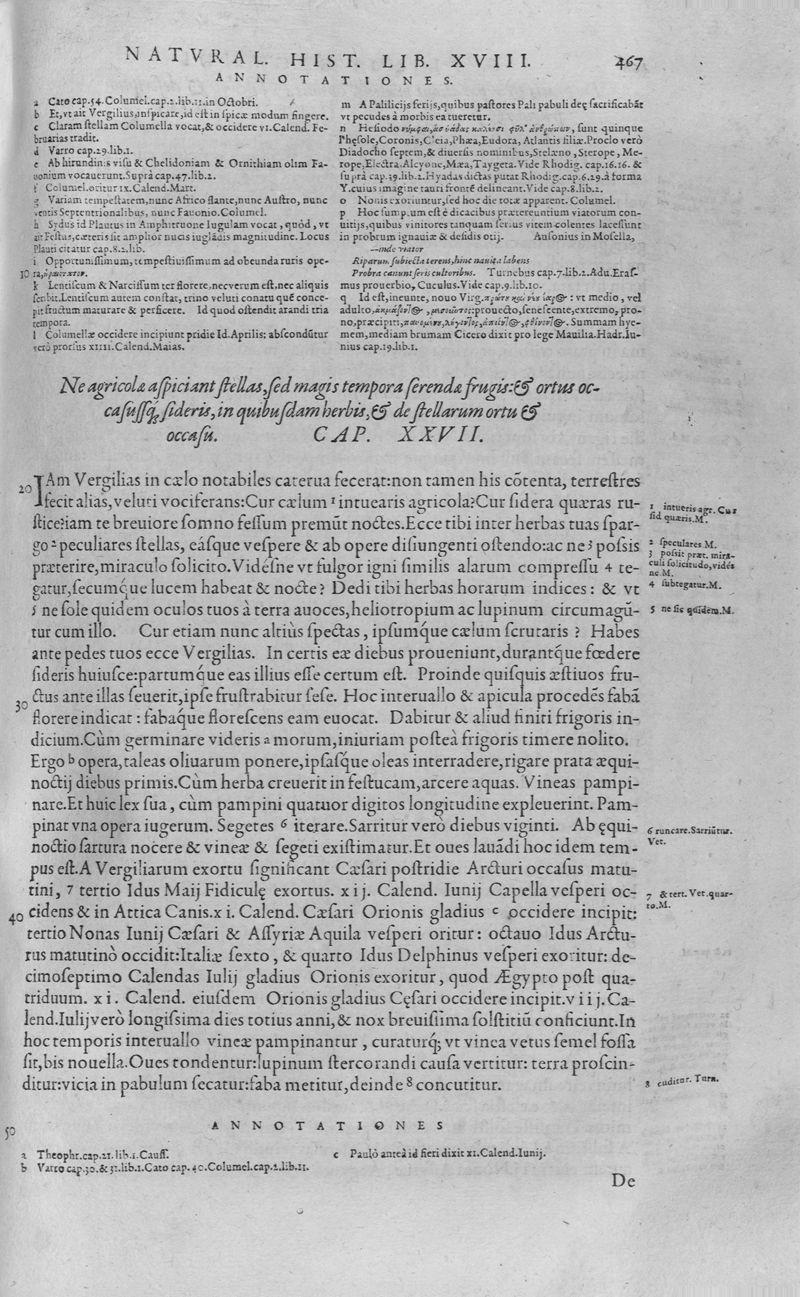 NATVRAL. HIST. LIB. XVIII. 467
ANNOTATIONES.
a Cato cap.54. Columel.cap.2.lib.11.in Octobri.
b Et, vt ait Vergilius, inspicare, id est in spicæ modum fingere.
c Claram stellam Columella vocat, & occidere VI. Calend. Fe-
bruarias tradit.
d Varro cap.29.lib.1.
e Ab hirundinis visu & Chelidoniam & Ornithiam olim Fa-
uonium vocauerunt. Suprà cap.47.lib.2.
f Columel. oritur IX. Calend. Mart.
g Variam tempestatem, nunc Africo flante, nunc Austro, nunc
ventis Septentrionalibus, nunc Fauonio. Columel.
h Sydus id Plautus in Amphitruone Iugulam vocat, quód, vt
ait Festus, cæteris sit amplior nucis iuglãdis magnitudine. Locus
Plauti citatur cap.82.lib.
i Opportunissimum, tempestiuissimum ad obeunda ruris ope-
10 ra,
k Lentiscum & Narcissum ter florere, nec verum est, nec aliquis
scribit. Lentiscum autem constat, trino veluti conatu quẽ conce-
pit fructum maturare & perficere. Id quod ostendit arandi tria
tempora.
l Columellæ occidere incipiunt pridie Id. Aprilis: abscondũtur
verò prorsus XIIII. Calend. Maias.
m A Palilicijs ferijs, quibus pastores Pali pabuli deę sacrificabãt
vt pecudes à morbis ea tueretur.
n Hesiodo sunt quinque
Phęsole, Coronis, Cleia, Phæa, Eudora, Atlantis filiæ. Proclo verò
Diadocho septem, & diuersis nominibus, Stelæno, Sterope, Me-
rope, Electra, Alcyone, Mæa, Taygeta. Vide Rhodig. cap.16.16. &
suprà cap.39.lib.2. Hyadas dictas putat Rhodig.cap.6.29.à forma
Y. cuius imagine tauri frontẽ delineant. Vide cap.8.lib.2.
o Nonis exoriuntur, sed hoc die totæ apparent. Columel.
p Hoc sumptum est è dicacibus prætereuntium viatorum con-
uitijs, quibus vinitores tanquam serius vitem colentes lacessunt
in probrum ignauiæ & desidis otij. Ausonius in Mosella,
—inde viator
Riparum subiecta terens, hinc nauita labens
Probra canunt seris cultoribus. Turnebus cap.7.lib.2. Adu. Eras-
mus prouerbio, Cuculus. Vide cap.9.lib.10.
q Id est, ineunte, nouo Virg. : vt medio, vel
adulto, : prouecto, senescente, extremo, pro-
no, præcipiti, Summam hye-
mem, mediam brumam Cicero dixit pro lege Mauilia. Hadr. Iu-
nius cap.19.lib.1.
Ne agricola aspiciant stellas, sed magis tempora serenda frugis: & ortus oc-
casusq́ sideris, in quibusdam herbis, & de stellarum ortu &
occasu. CAP. XXVII.
20 IAm Vergilias in cælo notabiles caterua fecerat: non tamen his cõtenta, terrestres
fecit alias, veluti vociferans: Cur cælum 1 intuearis agricola? Cur sidera quæras ru-
stice? iam te breuiore somno fessum premũt noctes. Ecce tibi inter herbas tuas spar-
go 2 peculiares stellas, eásque vespere & ab opere disiungenti ostendo: ac ne 3 possis
præterire, miraculo solicito. Vidésne vt fulgor igni similis alarum compressu 4 te-
gatur, secumq́ue lucem habeat & nocte? Dedi tibi herbas horarum indices: & vt
5 ne sole quidem oculos tuos à terra auoces, heliotropium ac lupinum circumagũ-
tur cum illo. Cur etiam nunc altiùs spectas, ipsumq́ue cælum scrutaris? Habes
ante pedes tuos ecce Vergilias. In certis eæ diebus proueniunt, durantq́ue fœdere
sideris huiusce: partumq́ue eas illius esse certum est. Proinde quisquis æstiuos fru-
30 ctus ante illas seuerit, ipse frustrabitur sese. Hoc interuallo & apicula procedẽs fabã
florere indicat: fabaque florescens eam euocat. Dabitur & aliud finiti frigoris in-
dicium. Cùm germinare videris a morum, iniuriam posteà frigoris timere nolito.
Ergo b opera, taleas oliuarum ponere, ipsasq́ue oleas interradere, rigare prata æqui-
noctij diebus primis. Cùm herba creuerit in festucam, arcere aquas. Vineas pampi-
nare. Et huic lex sua, cùm pampini quatuor digitos longitudine expleuerint. Pam-
pinat vna opera iugerum. Segetes 6 iterare. Sarritur verò diebus viginti. Ab ęqui-
noctio sartura nocere & vineæ & segeti existimatur. Et oues lauãdi hoc idem tem-
pus est. A Vergiliarum exortu significant Cæsari postridie Arcturi occasus matu-
tini, 7 tertio Idus Maij Fidiculę exortus. xij. Calend. Iunij Capella vesperi oc-
40 cidens & in Attica Canis. xi. Calend. Cæsari Orionis gladius c occidere incipit:
tertio Nonas Iunij Cæsari & Assyriæ Aquila vesperi oritur: octauo Idus Arctu-
rus matutinò occidit: Italiæ sexto, & quarto Idus Delphinus vesperi exoritur: de-
cimoseptimo Calendas Iulij gladius Orionis exoritur, quod Ægypto post qua-
triduum. xi. Calend. eiusdem Orionis gladius Cęsari occidere incipit. viij. Ca-
lend. Iulij verò longissima dies totius anni, & nox breuissima solstitiũ conficiunt. In
hoc temporis interuallo vineæ pampinantur, curaturq́; vt vinea vetus semel fossa
sit, bis nouella. Oues tondentur: lupinum stercorandi causa vertitur: terra proscin-
ditur: vicia in pabulum secatur: faba metitur, deinde 8 concutitur.
1 intueris agr. Cur
sid quæris. M.
2 speculares M.
3 possit præt. mira-
culi solicitudo, vidés
ne. M.
4 subtegatur. M.
5 ne sis quidem. M.
6 runcare. Sarriũtur.
Vet.
7 & tert. Vet. quar-
to. M.
8 cuditur. Turn.
50 ANNOTATIONES
a Theophr.cap.21.lib.1.Causs.
b Varro cap.30.& 31.lib.1. Cato cap.40. Columel.cap.2.lib.11.
c Paulò anteà id fieri dixit XI. Calend. Iunij.
De